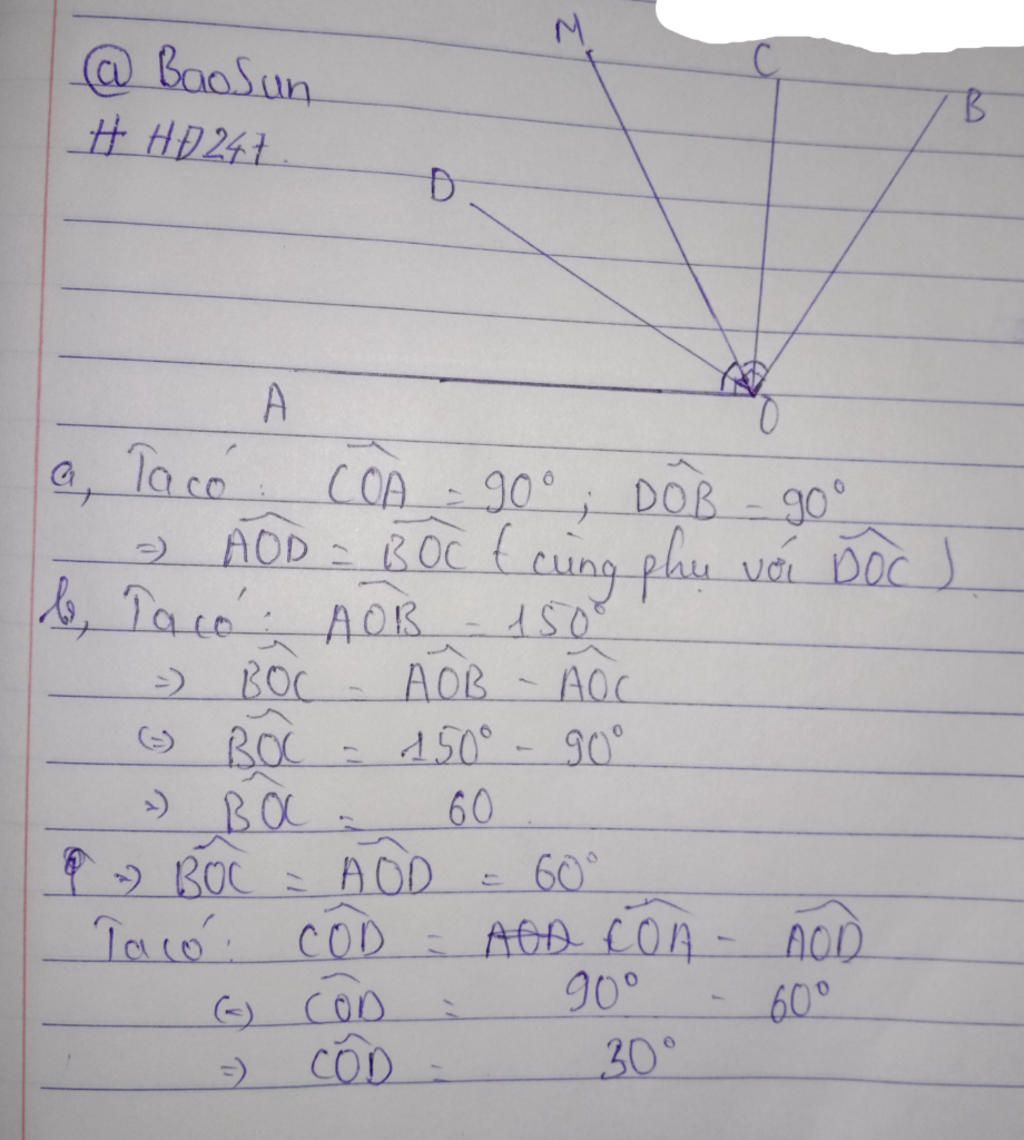 @ BaoSun
# HĐ247.
M
C
B
D
A
O
a, Ta có: COA = 90° ; DOB = 90°
=> AOD = BOC ( cùng phụ với DOC )
b, Ta có: AOB = 150°
=> BOC = AOB - AOC
(=) BOC = 150° - 90°
=> BOC = 60
=> BOC = AOD = 60°
Ta có: COD = COA - AOD
(=) COD = 90° - 60°
=> COD = 30°